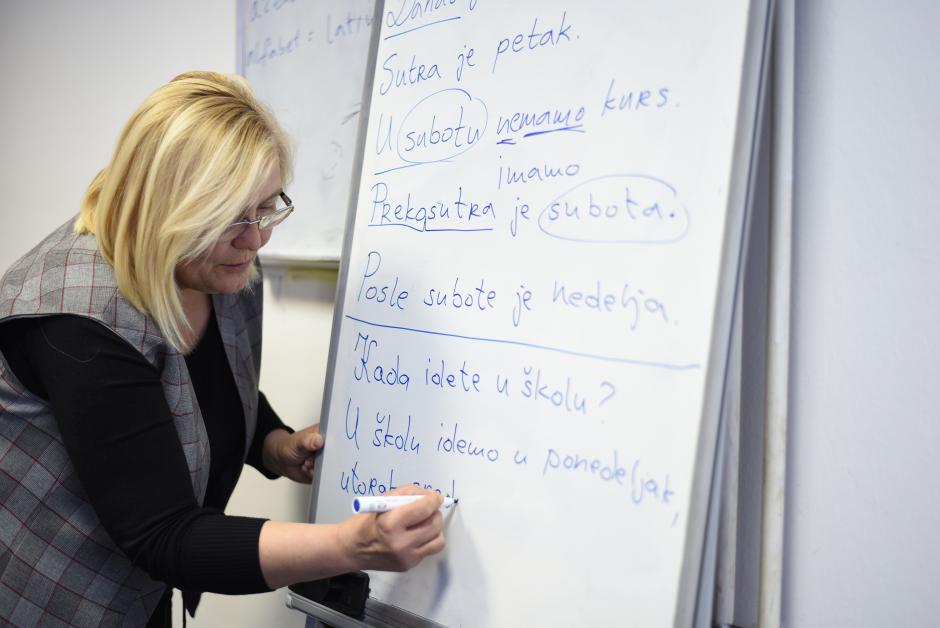 alfabet =
Sutra je petak.
U subotu nemamo kurs.
imamo
Prekosutra je subota.
Posle subote je nedelja.
Kada idete u školu?
U školu idemo u ponedeljak,
utorak